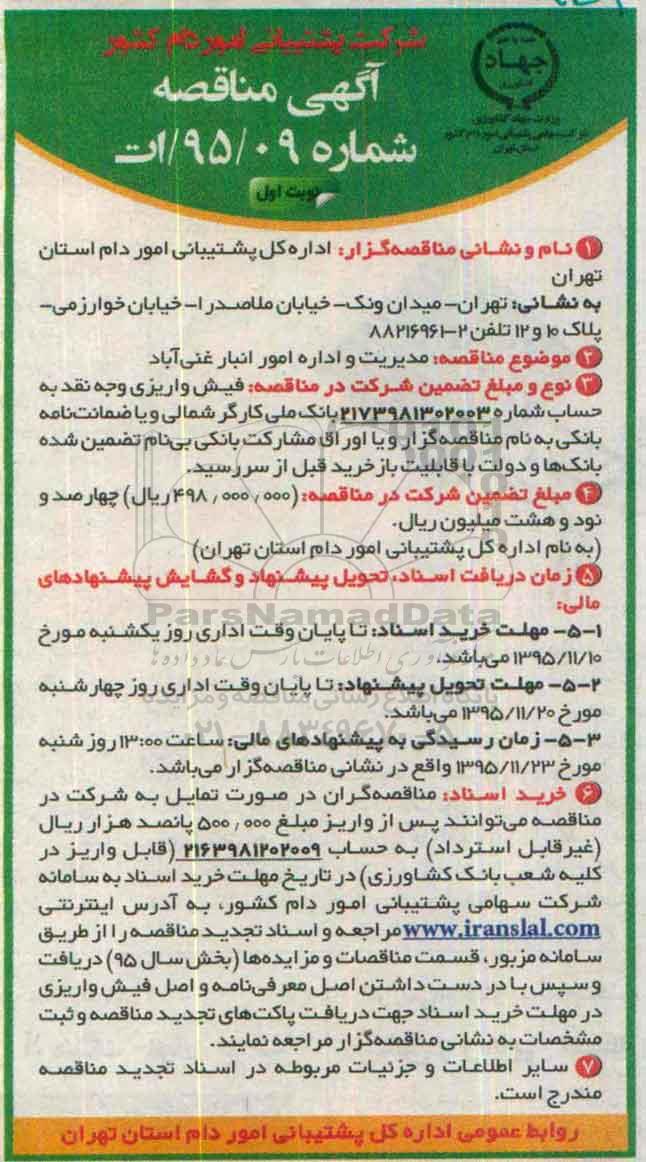 شرکت پشتیبانی امور دام کشور
جهاد
وزارت جهاد کشاورزی
شرکت سهامی پشتیبانی امور دام کشور
استان تهران
آگهی مناقصه
شماره ۹۵/۰۹/ات
نوبت اول
۱ نام و نشانی مناقصه‌گزار: اداره کل پشتیبانی امور دام استان
تهران
به نشانی: تهران- میدان ونک- خیابان ملاصدرا- خیابان خوارزمی-
پلاک ۱۰ و ۱۲ تلفن ۲-۸۸۲۱۶۹۶۱
۲ موضوع مناقصه: مدیریت و اداره امور انبار غنی‌آباد
۳ نوع و مبلغ تضمین شرکت در مناقصه: فیش واریزی وجه نقد به
حساب شماره ۲۱۷۳۹۸۱۳۰۲۰۰۳ بانک ملی کارگر شمالی و یا ضمانت‌نامه
بانکی به نام مناقصه‌گزار و یا اوراق مشارکت بانکی بی‌نام تضمین شده
بانک‌ها و دولت با قابلیت بازخرید قبل از سررسید.
۴ مبلغ تضمین شرکت در مناقصه: (۴۹۸٫۰۰۰٫۰۰۰ ریال) چهارصد و
نود و هشت میلیون ریال.
(به نام اداره کل پشتیبانی امور دام استان تهران)
۵ زمان دریافت اسناد، تحویل پیشنهاد و گشایش پیشنهادهای
مالی:
ParsNamadData
۵-۱- مهلت خرید اسناد: تا پایان وقت اداری روز یکشنبه مورخ
۱۳۹۵/۱۱/۱۰ می‌باشد.
فن‌آوری اطلاعات پارس نماد داده‌ها
۵-۲- مهلت تحویل پیشنهاد: تا پایان وقت اداری روز چهارشنبه
پایگاه اطلاع رسانی مناقصه و مزایده
مورخ ۱۳۹۵/۱۱/۲۰ می‌باشد.
۵-۳- زمان رسیدگی به پیشنهادهای مالی: ساعت ۱۳:۰۰ روز شنبه
مورخ ۱۳۹۵/۱۱/۲۳ واقع در نشانی مناقصه‌گزار می‌باشد.
۶ خرید اسناد: مناقصه‌گران در صورت تمایل به شرکت در
مناقصه می‌توانند پس از واریز مبلغ ۵۰۰٫۰۰۰ پانصد هزار ریال
(غیرقابل استرداد) به حساب ۲۱۶۳۹۸۱۲۰۲۰۰۹ (قابل واریز در
کلیه شعب بانک کشاورزی) در تاریخ مهلت خرید اسناد به سامانه
شرکت سهامی پشتیبانی امور دام کشور، به آدرس اینترنتی
www.iranslal.com مراجعه و اسناد تجدید مناقصه را از طریق
سامانه مزبور، قسمت مناقصات و مزایده‌ها (بخش سال ۹۵) دریافت
و سپس با در دست داشتن اصل معرفی‌نامه و اصل فیش واریزی
در مهلت خرید اسناد جهت دریافت پاکت‌های تجدید مناقصه و ثبت
مشخصات به نشانی مناقصه‌گزار مراجعه نمایند.
۷ سایر اطلاعات و جزئیات مربوطه در اسناد تجدید مناقصه
مندرج است.
روابط عمومی اداره کل پشتیبانی امور دام استان تهران